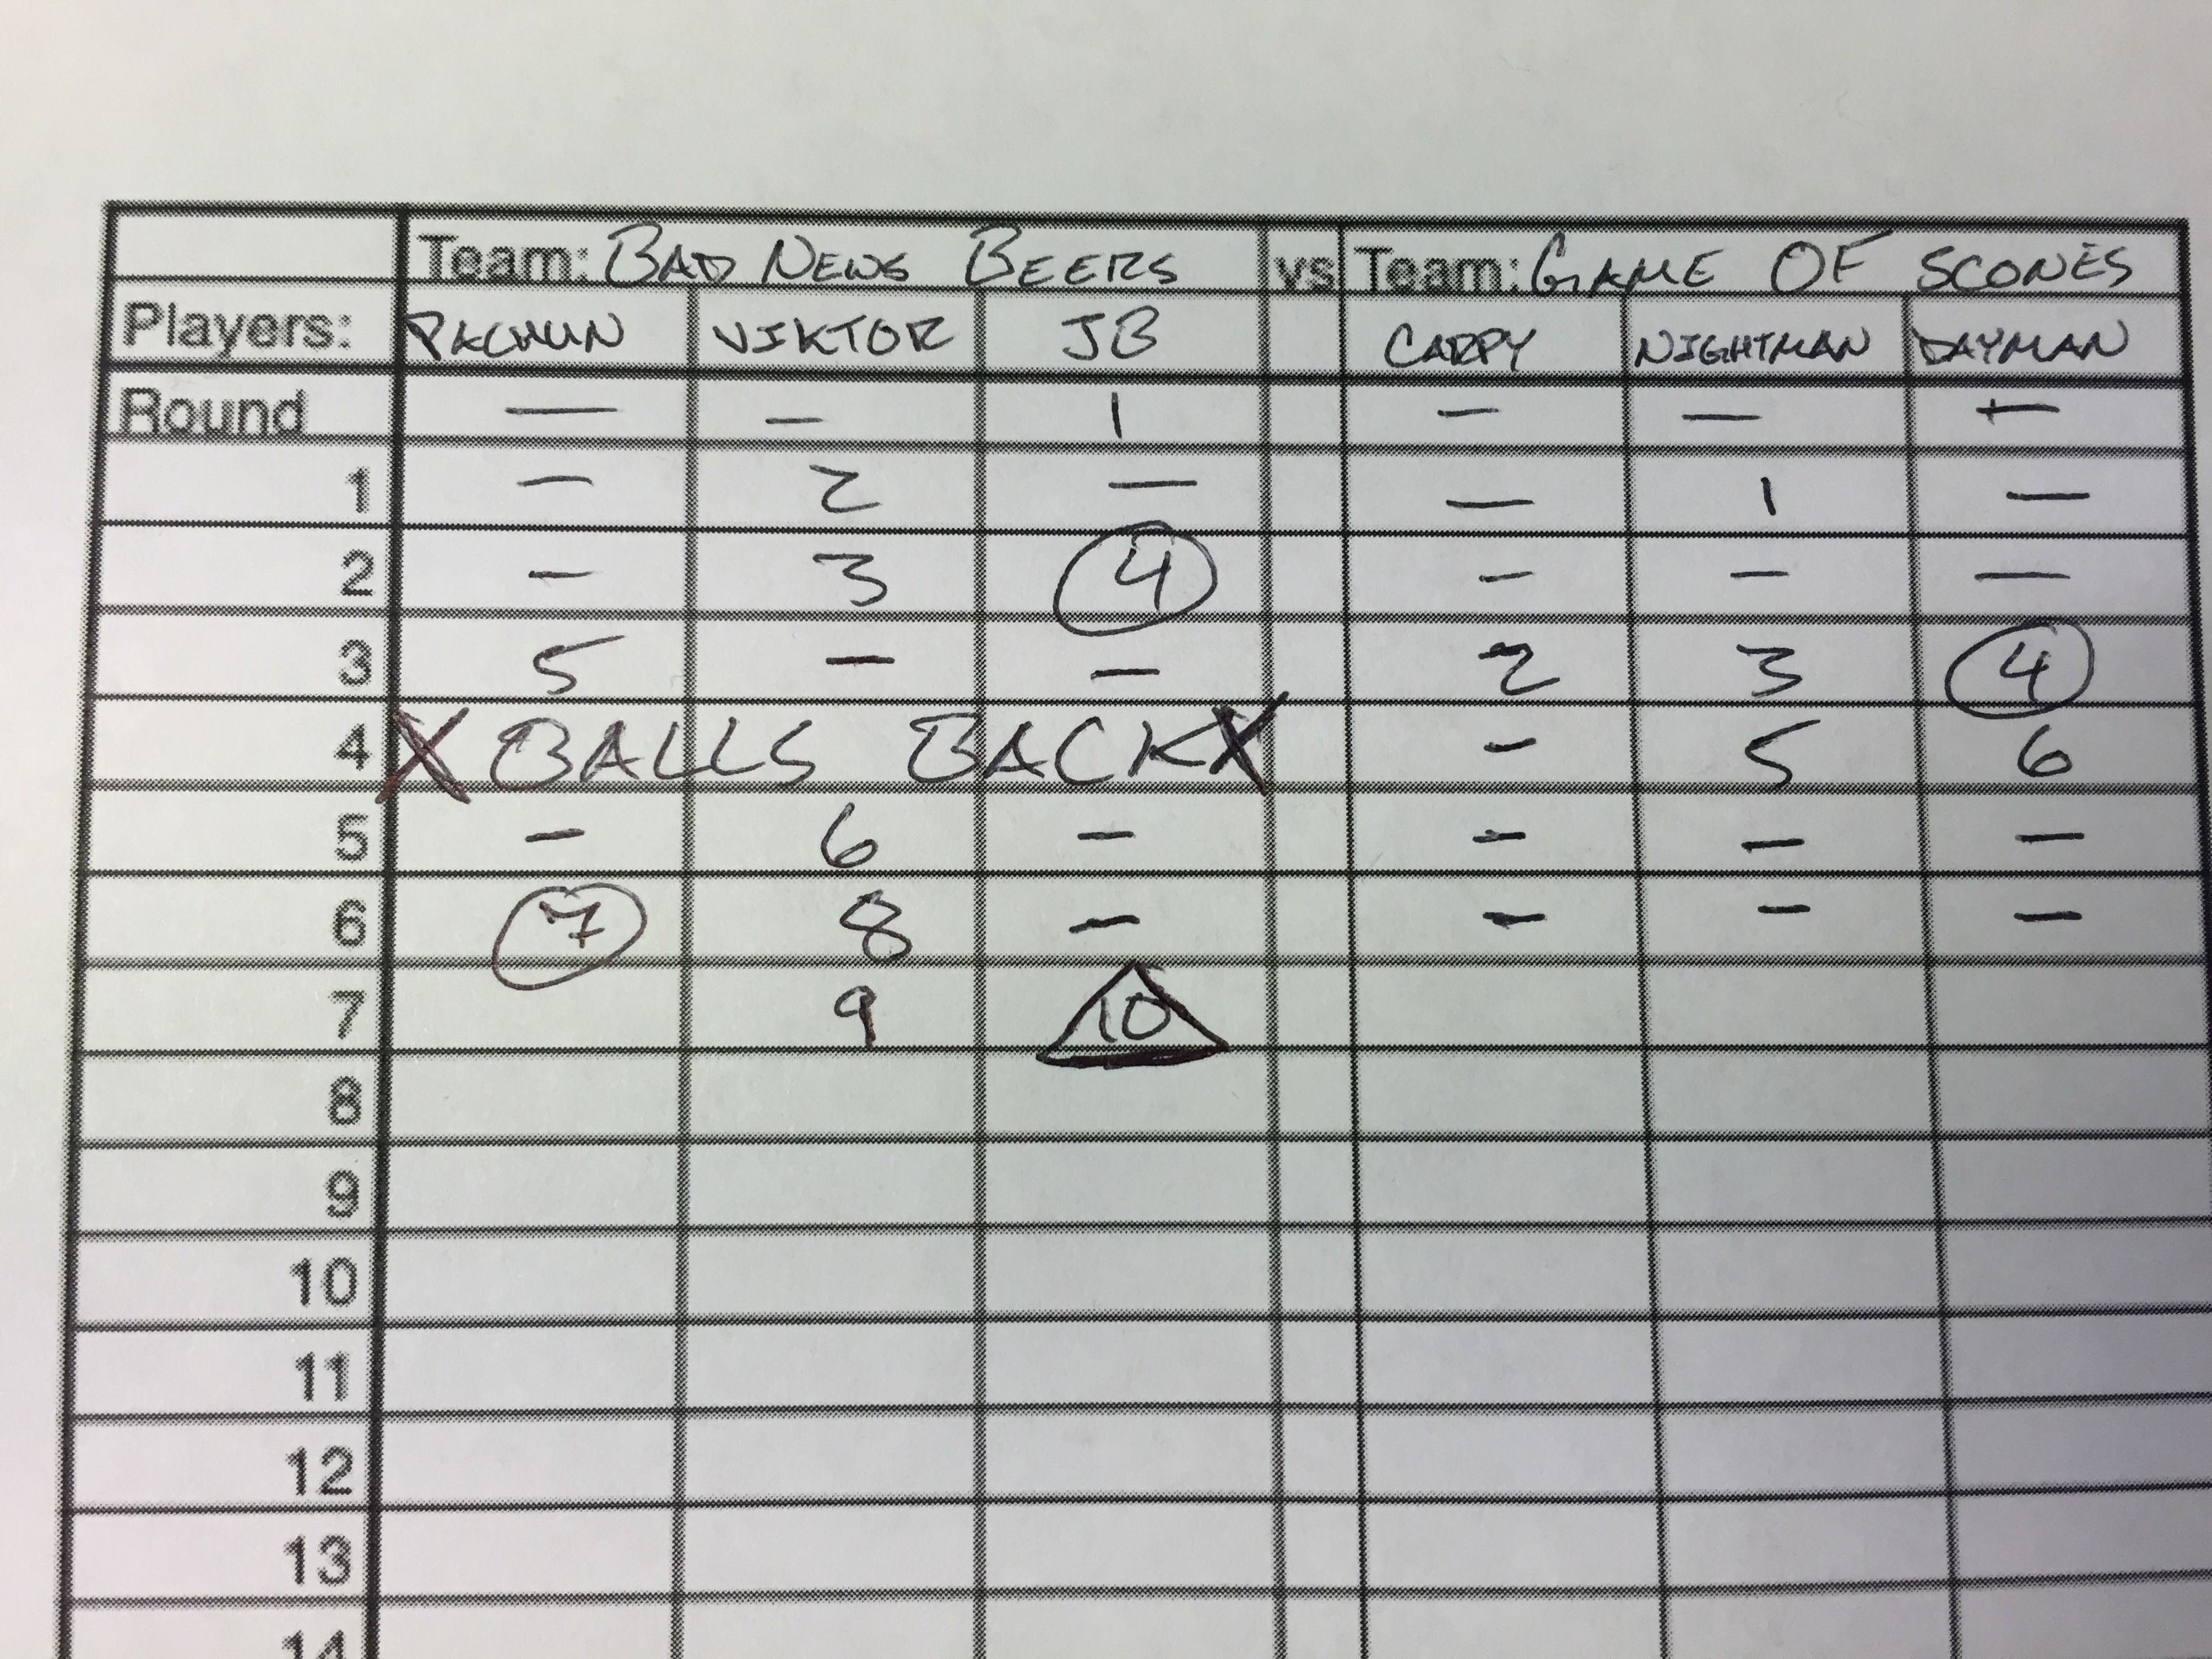 Team: BAD NEWS BEERS vs Team: GAME OF SCONES
Players: PACMUN VIKTOR JB CARPY NIGHTMAN DAYMAN
Round — — 1 — — —
1 — 2 — — 1 —
2 — 3 4 — — —
3 5 — — 2 3 4
4 X BALLS BACK X — 5 6
5 — 6 — — — —
6 7 8 — — — —
7 9 10
8
9
10
11
12
13
14